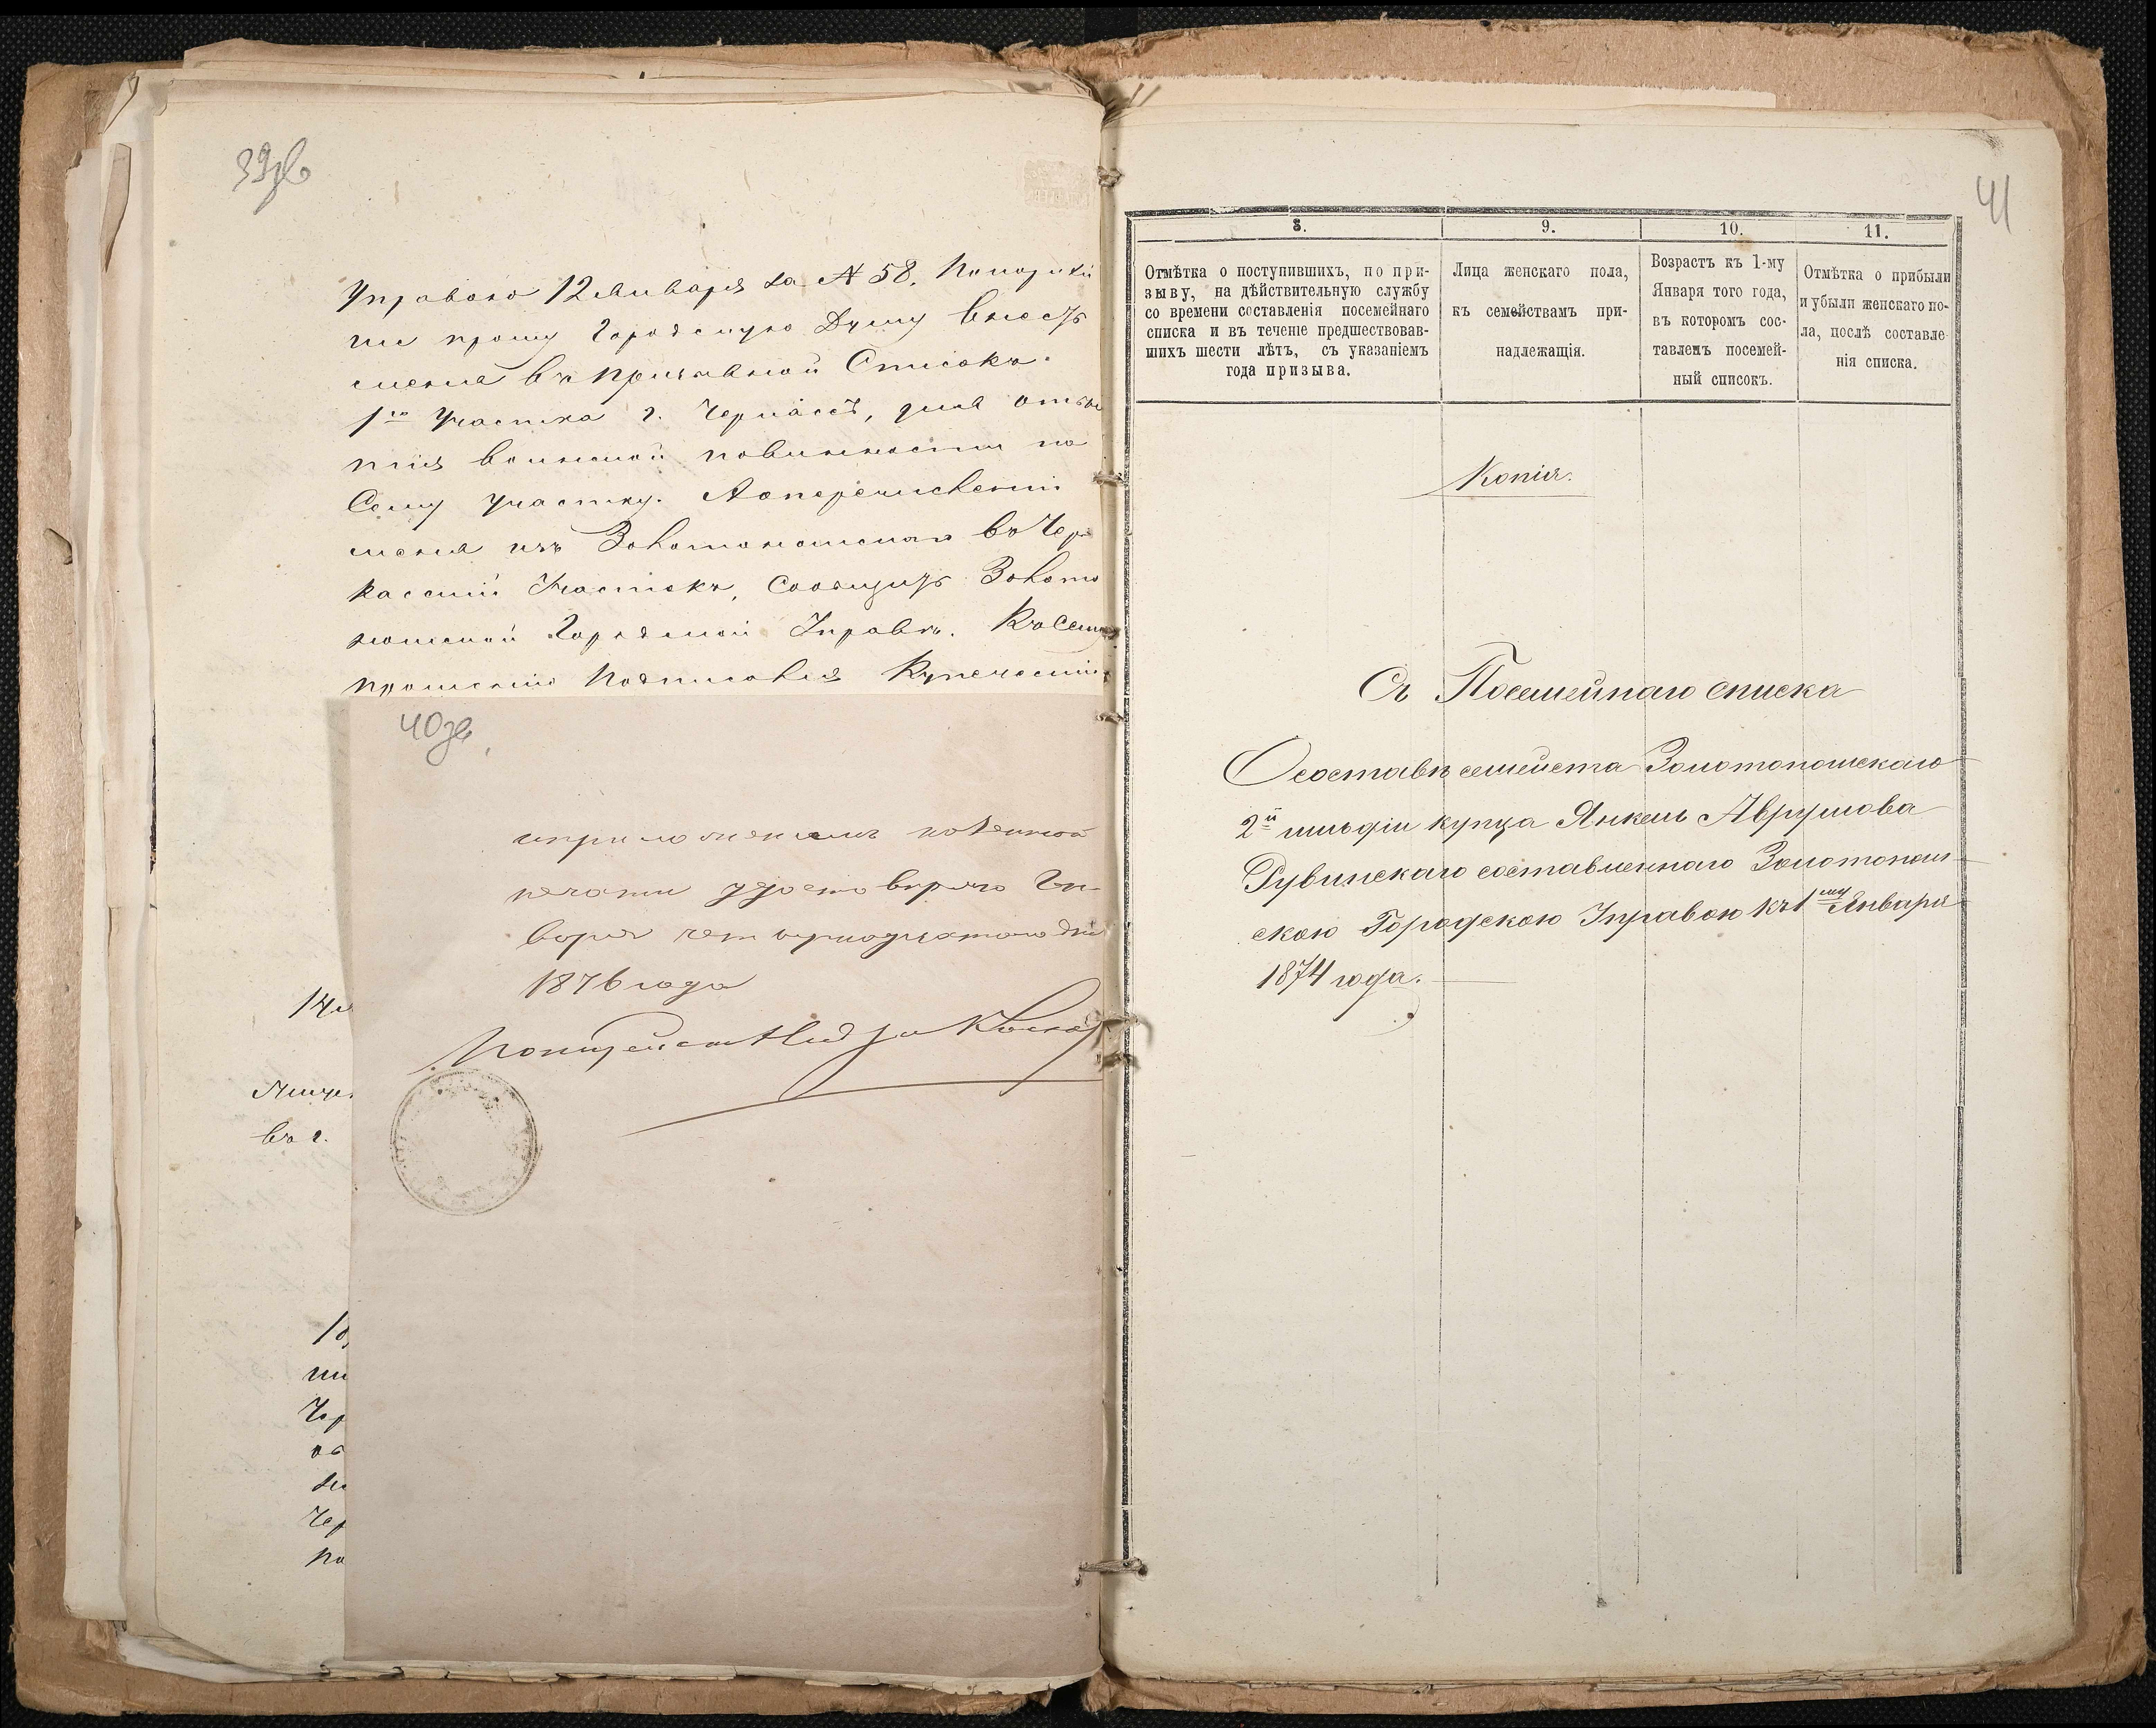 39об
Управою 12 Января за № 58. Покорнѣй
ше прошу Городскую Думу внесть
меня въ призывной Списокъ
1го участка г. Черкассъ, для отбы
тія воинской повинности по
Сему участку. А о перечисленіи
меня изъ Золотоношскаго въ Чер
касскій Участокъ, Сообщить Золото
ношской Городской Управѣ. Къ Сему
прошенію Подписался Купеческій
40об
съ приложеніемъ казенной
печати удостовѣряю Ян-
варя четырнадцатого дня
1876 года
Полицейскій Надзи
въ г.
41
8.
9.
10.
11.
Отмѣтка о поступившихъ, по при-
зыву, на дѣйствительную службу
со времени составленія посемейнаго
списка и въ теченіе предшествовав-
шихъ шести лѣтъ, съ указаніемъ
года призыва.
Лица женскаго пола,
къ семействамъ при-
надлежащія.
Возрастъ къ 1-му
Января того года,
въ которомъ сос-
тавленъ посемей-
ный списокъ.
Отмѣтка о прибыли
и убыли женскаго по-
ла, послѣ составле-
нія списка.
Копія.
Съ Посемейнаго списка
О составѣ семейста Золотоношскаго
2й гильдіи купца Янкель Аврумова
Рувинскаго составленнаго Золотонош-
скою Городскою Управою къ 1му Января
1874 года.